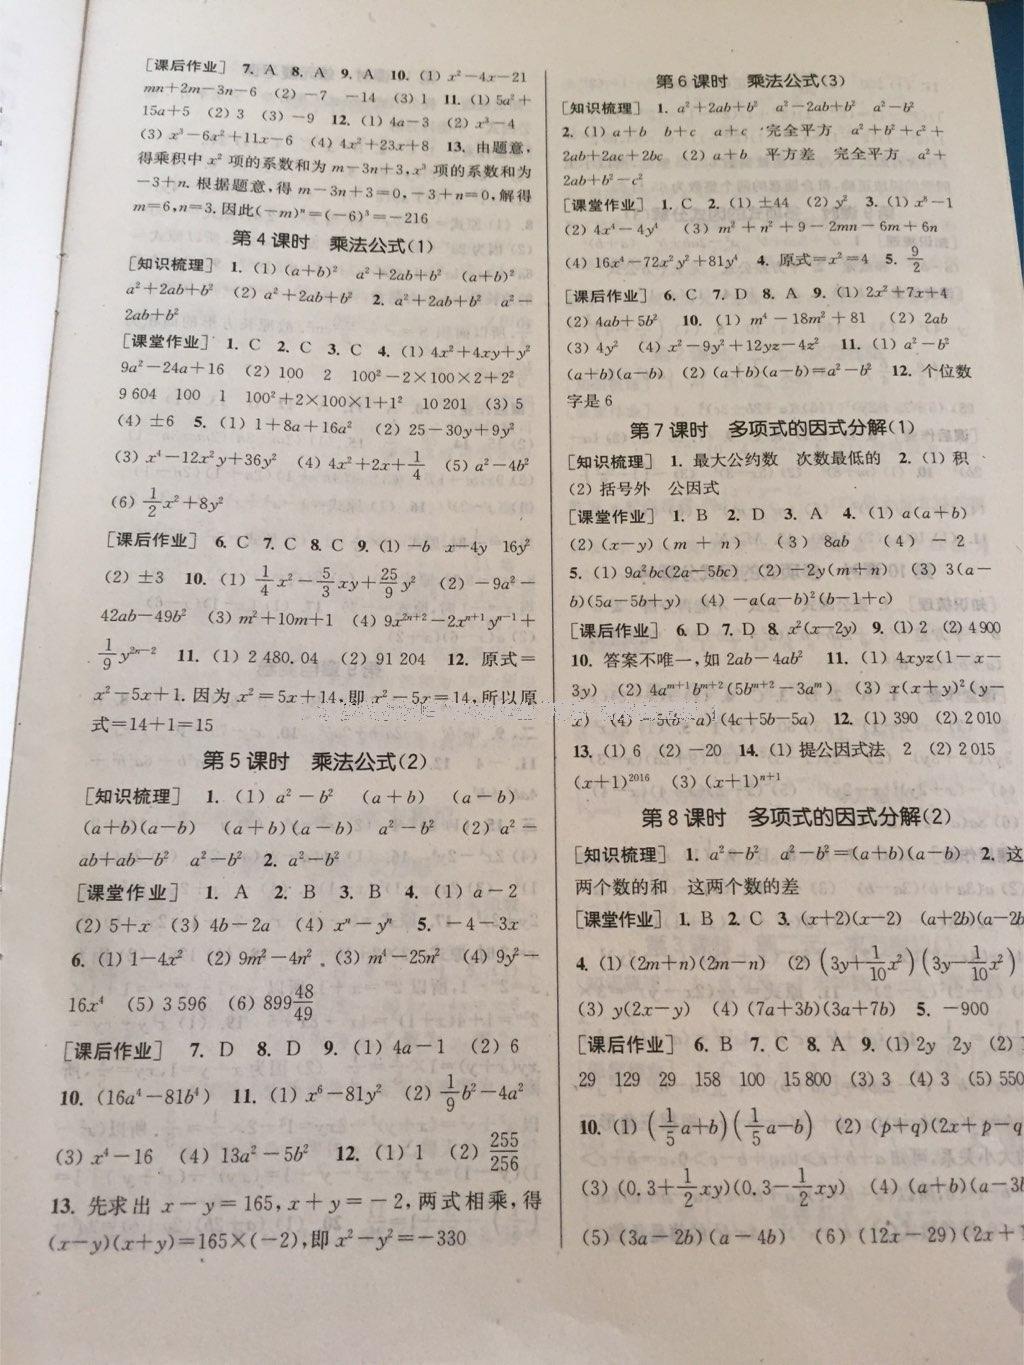 [课后作业] 7. A 8. A 9. A 10. (1) x²-4x-21
mn+2m-3n-6 (2) -7 -14 (3) 1 11. (1) 5a²+
15a+5 (2) 3 (3) -9 12. (1) 4a-3 (2) x³-4
(3) x³-6x²+11x-6 (4) 4x²+23x+8 13. 由题意,
得乘积中 x² 项的系数和为 m-3n+3,x³ 项的系数和为
-3+n. 根据题意,得 m-3n+3=0,-3+n=0,解得
m=6,n=3. 因此(-m)ⁿ=(-6)³=-216
第4课时 乘法公式(1)
[知识梳理] 1. (1) (a+b)² a²+2ab+b² (a+b)²
a²+2ab+b² (2) a²+2ab+b² 2. a²+2ab+b² a²-
2ab+b²
[课堂作业] 1. C 2. C 3. C 4. (1) 4x²+4xy+y²
9a²-24a+16 (2) 100 2 100²-2×100×2+2²
9 604 100 1 100²+2×100×1+1² 10 201 (3) 5
(4) ±6 5. (1) 1+8a+16a² (2) 25-30y+9y²
(3) x⁴-12x²y+36y² (4) 4x²+2x+1/4 (5) a²-4b²
(6) 1/2x²+8y²
[课后作业] 6. C 7. C 8. C 9. (1) -b x-4y 16y²
(2) ±3 10. (1) 1/4x²-5/3xy+25/9y² (2) -9a²-
42ab-49b² (3) m²+10m+1 (4) 9x²ⁿ⁺²-2xⁿ⁺¹yⁿ⁻¹+
1/9y²ⁿ⁻² 11. (1) 2 480.04 (2) 91 204 12. 原式=
x²-5x+1. 因为 x²=5x+14,即 x²-5x=14,所以原
式=14+1=15
第5课时 乘法公式(2)
[知识梳理] 1. (1) a²-b² (a+b) (a-b)
(a+b)(a-b) (a+b)(a-b) a²-b² (2) a²-
ab+ab-b² a²-b² 2. a²-b²
[课堂作业] 1. A 2. B 3. B 4. (1) a-2
(2) 5+x (3) 4b-2a (4) xⁿ-yⁿ 5. -4-3x
6. (1) 1-4x² (2) 9m²-4n² (3) m⁴-25n² (4) 9y²-
16x⁴ (5) 3 596 (6) 899 48/49
[课后作业] 7. D 8. D 9. (1) 4a-1 (2) 6
10. (16a⁴-81b⁴) 11. (1) x⁶-81y² (2) 1/9b²-4a²
(3) x⁴-16 (4) 13a²-5b² 12. (1) 1 (2) 255/256
13. 先求出 x-y=165,x+y=-2,两式相乘,得
(x-y)(x+y)=165×(-2),即 x²-y²=-330
第6课时 乘法公式(3)
[知识梳理] 1. a²+2ab+b² a²-2ab+b² a²-b²
2. (1) a+b b+c a+c 完全平方 a²+b²+c²+
2ab+2ac+2bc (2) a+b 平方差 完全平方 a²+
2ab+b²-c²
[课堂作业] 1. C 2. (1) ±44 (2) y² 3. (1) x⁸-1
(2) 4x⁴-4y⁴ (3) m²+n²+9-2mn-6m+6n
(4) 16x⁴-72x²y²+81y⁴ 4. 原式=x²=4 5. 9/2
[课后作业] 6. C 7. D 8. A 9. (1) 2x²+7x+4
(2) 4ab+5b² 10. (1) m⁴-18m²+81 (2) 2ab
(3) 4y² (4) x²-9y²+12yz-4z² 11. (1) a²-b²
(a+b)(a-b) (2) (a+b)(a-b)=a²-b² 12. 个位数
字是6
第7课时 多项式的因式分解(1)
[知识梳理] 1. 最大公约数 次数最低的 2. (1) 积
(2) 括号外 公因式
[课堂作业] 1. B 2. D 3. A 4. (1) a(a+b)
(2) (x-y)(m+n) (3) 8ab (4) -2
5. (1) 9a²bc(2a-5bc) (2) -2y(m+n) (3) 3(a-
b)(5a-5b+y) (4) -a(a-b)²(b-1+c)
[课后作业] 6. D 7. D 8. x²(x-2y) 9. (1) 2 (2) 4 900
10. 答案不唯一,如 2ab-4ab² 11. (1) 4xyz(1-x-
3y) (2) 4aᵐ⁺¹bᵐ⁺²(5bᵐ⁺²-3aᵐ) (3) x(x+y)²(y-
x) (4) -5(b-a)³(4c+5b-5a) 12. (1) 390 (2) 2 010
13. (1) 6 (2) -20 14. (1) 提公因式法 2 (2) 2 015
(x+1)²⁰¹⁶ (3) (x+1)ⁿ⁺¹
第8课时 多项式的因式分解(2)
[知识梳理] 1. a²-b² a²-b²=(a+b)(a-b) 2. 这
两个数的和 这两个数的差
[课堂作业] 1. B 2. C 3. (x+2)(x-2) (a+2b)(a-2b
4. (1) (2m+n)(2m-n) (2) (3y+1/10x²)(3y-1/10x²)
(3) y(2x-y) (4) (7a+3b)(3a+7b) 5. -900
[课后作业] 6. B 7. C 8. A 9. (1) 2y 2y (2)
29 129 29 158 100 15 800 (3) 3 (4) 3 (5) 550
10. (1) (1/5a+b)(1/5a-b) (2) (p+q)(2x+p-q
(3) (0.3+1/2xy)(0.3-1/2xy) (4) (a+b)(a-3b
(5) (3a-2b)(a-4b) (6) (12x-29)(2x+